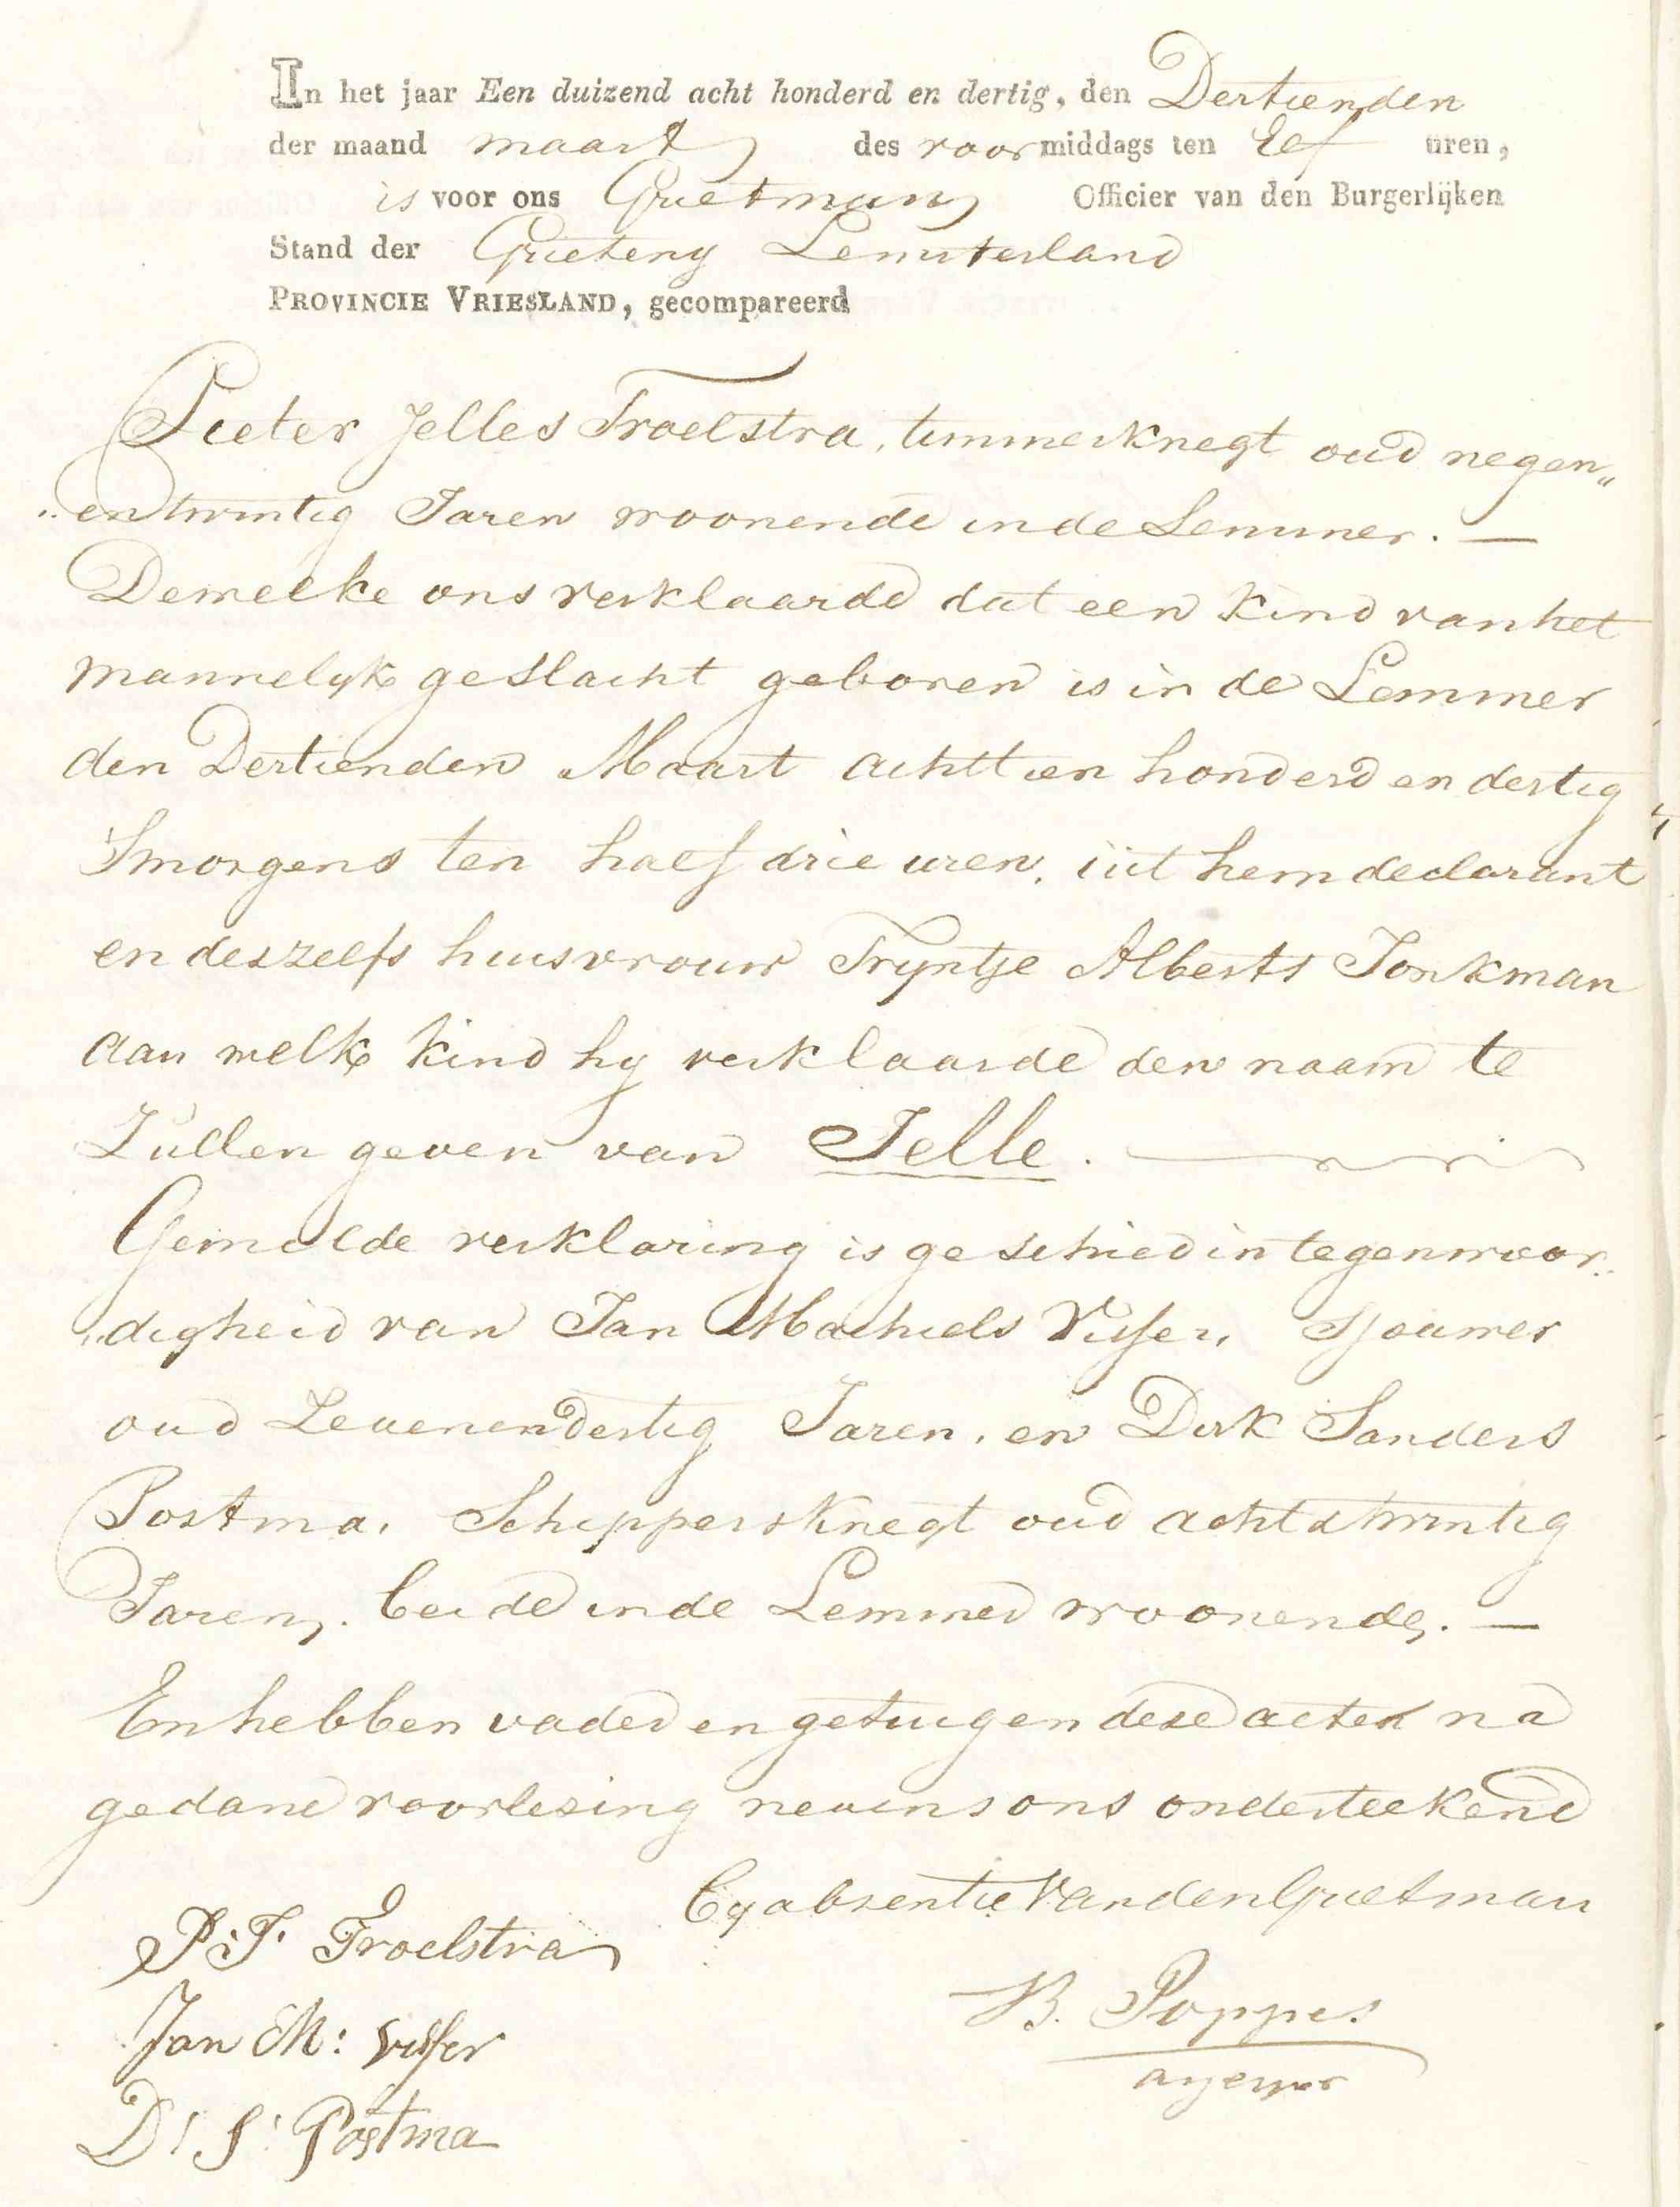 In het jaar Een duizend acht honderd en dertig, den Dertienden
der maand maart des voormiddags ten Elf uren,
is voor ons Grietman Officier van den Burgerlijken
Stand der Grieteny Lemsterland
PROVINCIE VRIESLAND, gecompareerd
Pieter Jelles Troelstra, timmerknegt oud negen„
„entwintig Jaren woonende in de Lemmer. —
Dewelke ons verklaarde dat een kind van het
mannelyk geslacht geboren is in de Lemmer
den Dertienden Maart achttien honderd en dertig
Smorgens ten half drie uren, uit hem declarant
en deszelfs huisvrouw Tryntje Alberts Jonkman
aan welk kind hy verklaarde den naam te
Zullen geven van Jelle.
Gemelde verklaring is geschied in tegenwoor„
„digheid van Jan Machiels Visser, Sjouwer
oud Zevenendertig Jaren, en Dirk Sanders
Postma, Schippersknegt oud acht&twintig
Jaren, beide in de Lemmer woonende. —
En hebben vader en getuigen deze acten na
gedane voorlezing nevens ons onderteekend
By absentie van den Grietman
P. J. Troelstra
Jan M: Visser
B. Poppes
D: S: Postma